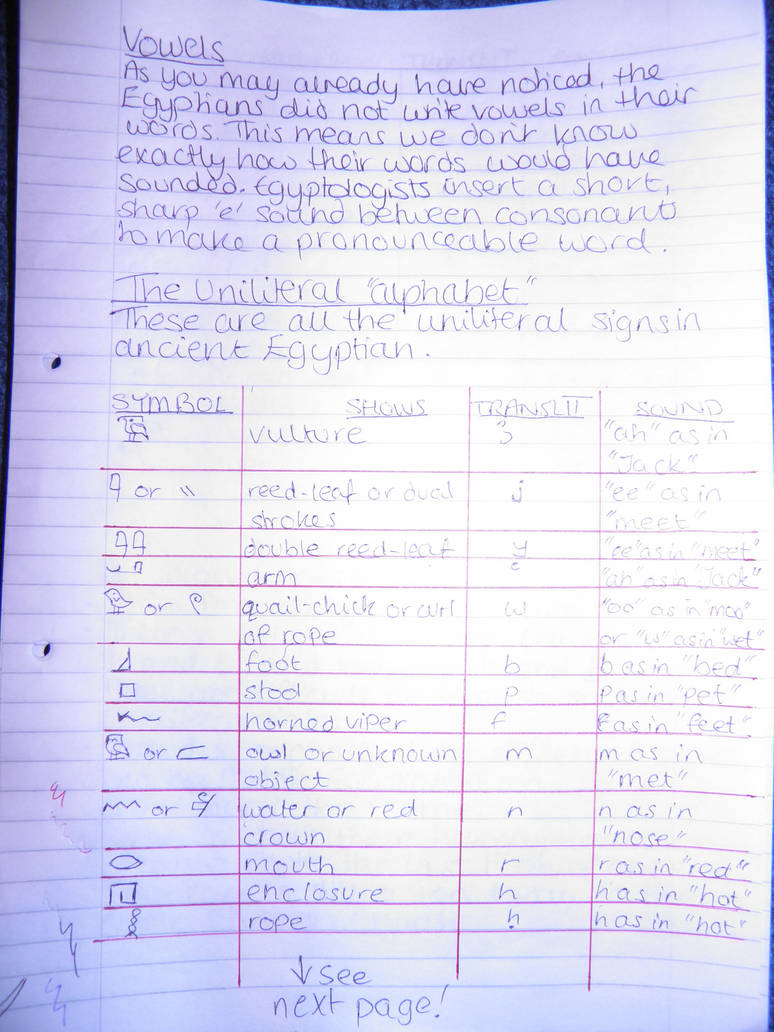 Vowels
As you may already have noticed, the
Egyptians did not write vowels in their
words. This means we don't know
exactly how their words would have
sounded. Egyptologists insert a short,
sharp 'e' sound between consonants
to make a pronounceable word.
The Uniliteral "alphabet"
These are all the uniliteral signs in
ancient Egyptian.
SYMBOL SHOWS TRANSLIT SOUND
vulture ꜣ "ah" as in
"Jack"
or reed-leaf or dual j "ee" as in
strokes "meet"
double reed-leaf y "ee" as in "meet"
arm ꜥ "ah" as in "Jack"
or quail-chick or curl w "oo" as in "moo"
of rope or "w" as in "wet"
foot b b as in "bed"
stool p p as in "pet"
horned viper f f as in "feet"
or owl or unknown m m as in
object "met"
or water or red n n as in
crown "nose"
mouth r r as in "red"
enclosure h h as in "hot"
rope ḥ h as in "hot"
↓ see
next page!